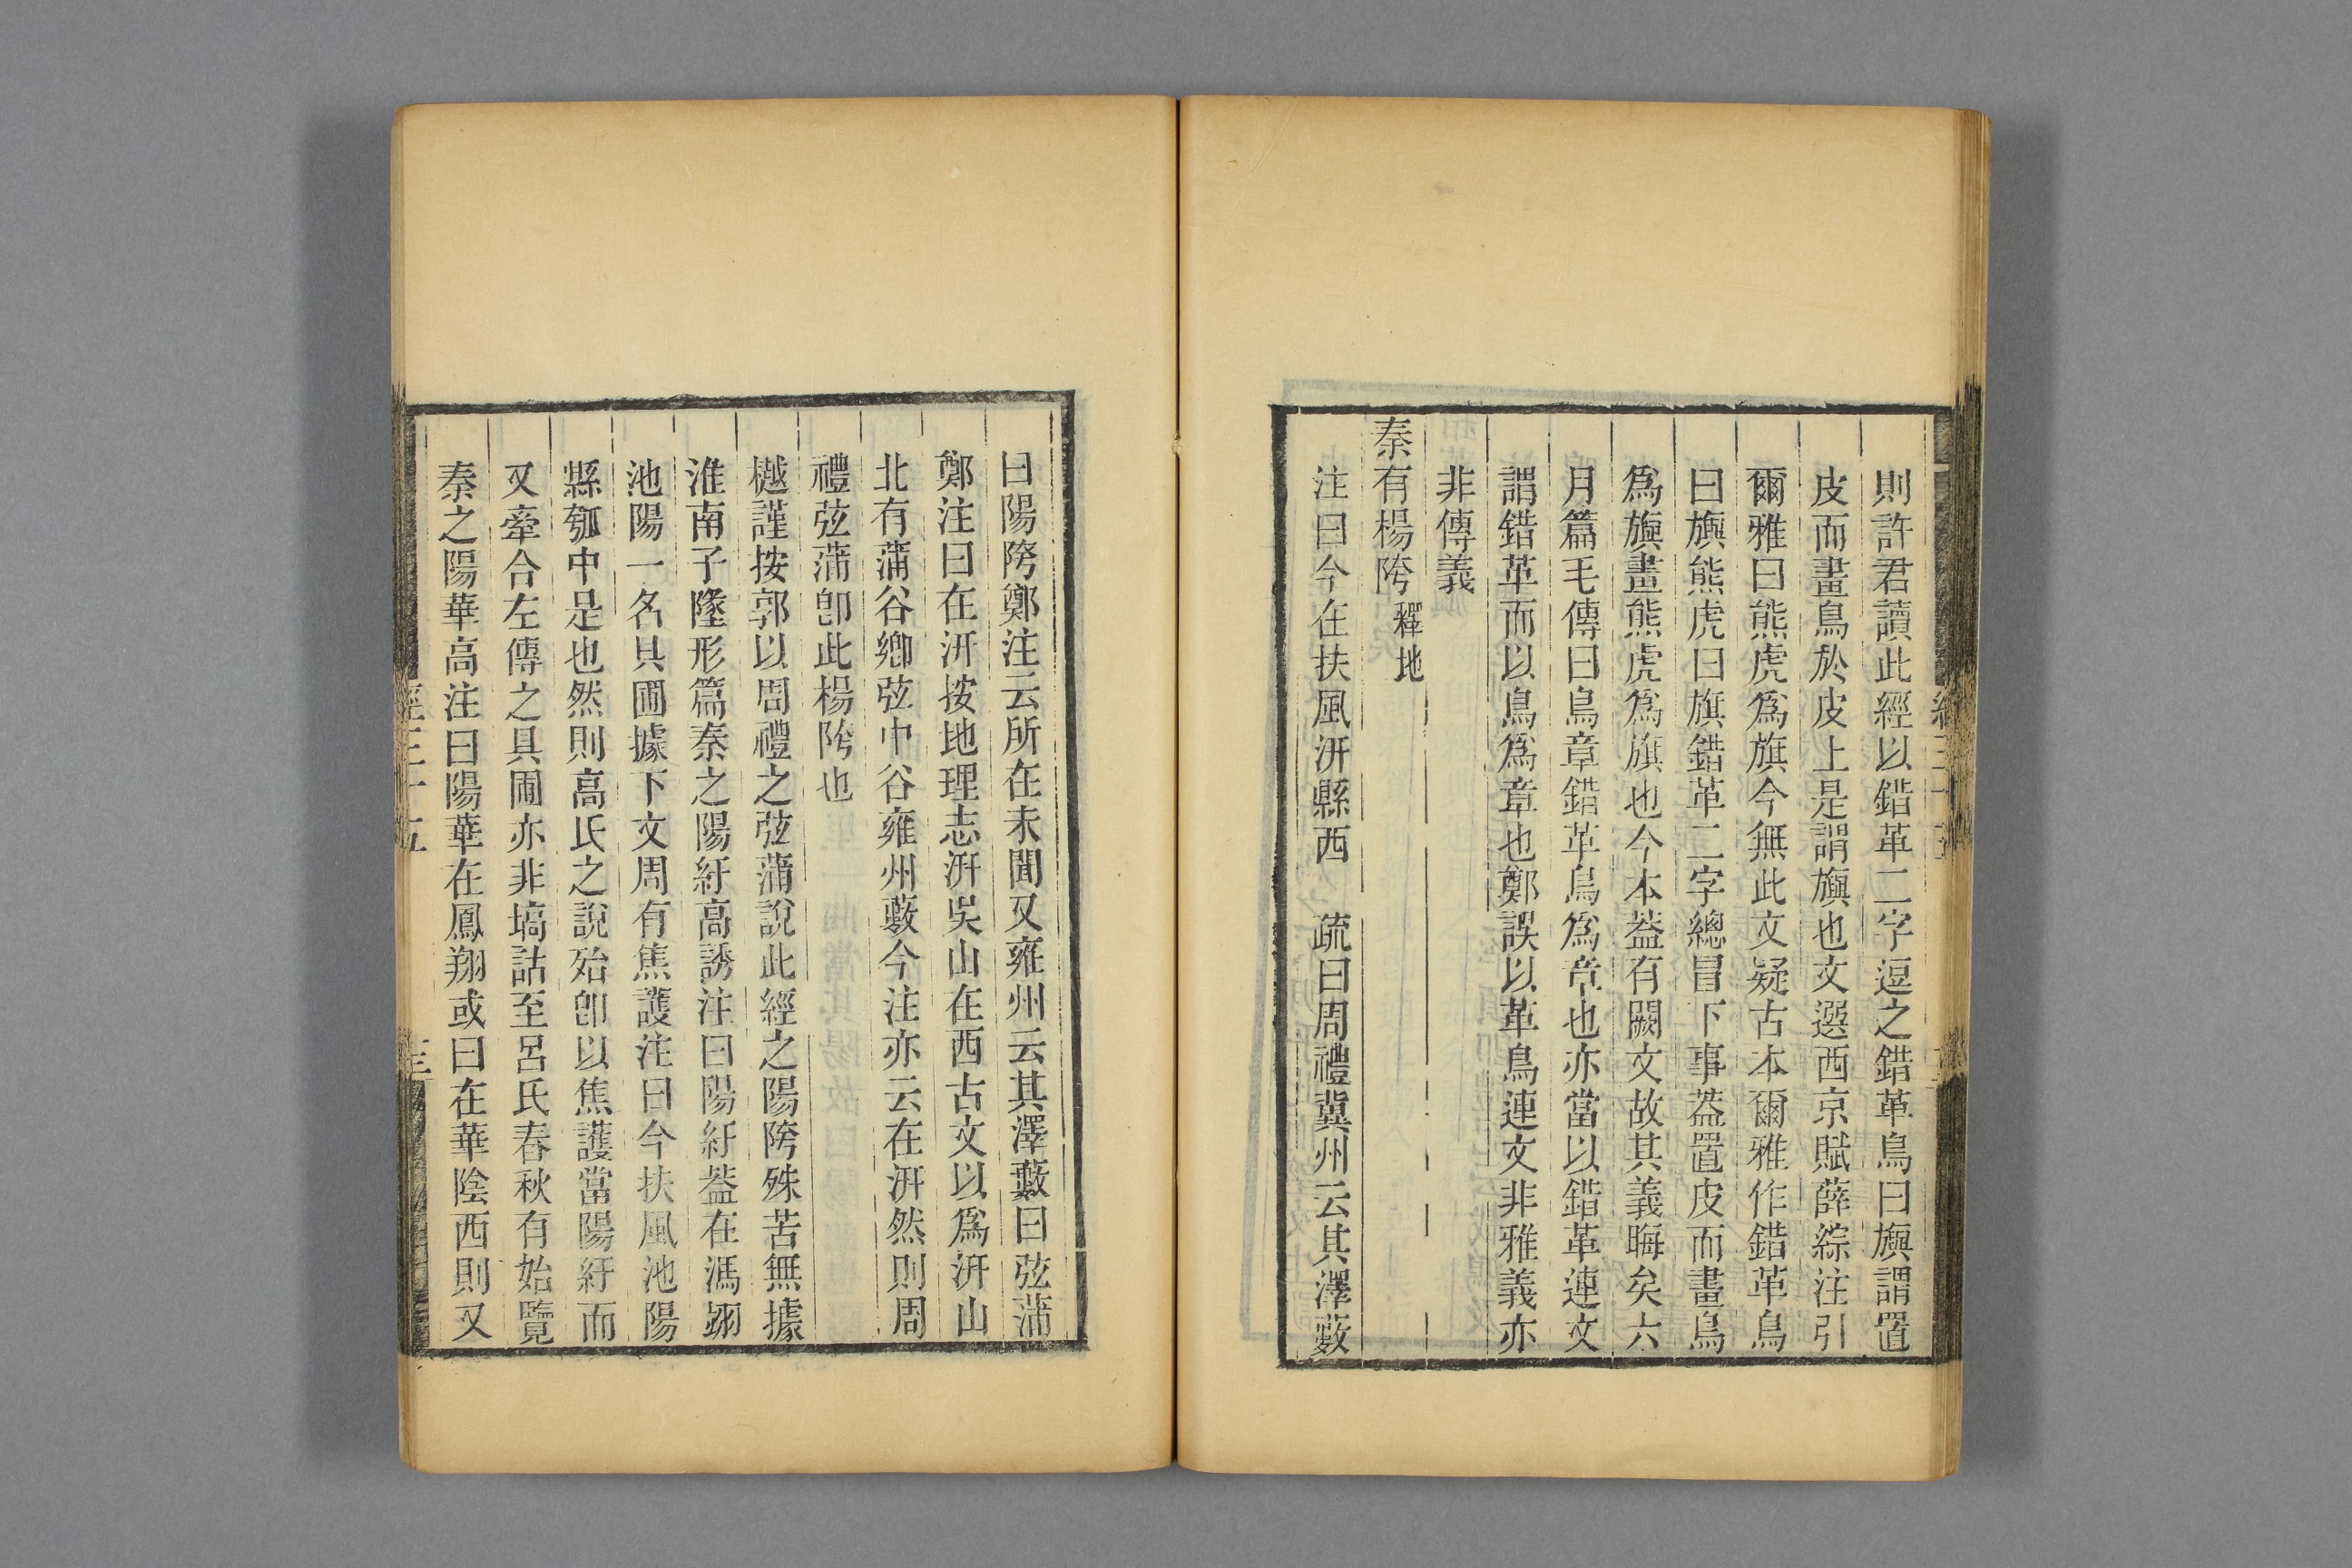 則許君讀此經以錯革二字逗之錯革鳥曰旟謂置
皮而畫鳥於皮上是謂旟也文選西京賦薛綜注引
爾雅曰熊虎爲旗今無此文疑古本爾雅作錯革鳥
曰旟熊虎曰旗錯革二字總冒下事葢置皮而畫鳥
爲旟畫熊虎爲旗也今本葢有闕文故其義晦矣六
月篇毛傳曰鳥章錯革鳥爲章也亦當以錯革連文
謂錯革而以鳥爲章也鄭誤以革鳥連文非雅義亦
非傳義
秦有楊陓 釋地
注曰今在扶風汧縣西 疏曰周禮冀州云其澤藪
曰陽陓鄭注云所在未聞又雍州云其澤藪曰弦蒲
鄭注曰在汧按地理志汧吳山在西古文以爲汧山
北有蒲谷鄉弦中谷雍州藪今注亦云在汧然則周
禮弦蒲卽此楊陓也
樾謹按郭以周禮之弦蒲說此經之陽陓殊苦無據
淮南子墬形篇秦之陽紆高誘注曰陽紆葢在馮翊
池陽一名具圃據下文周有焦護注曰今扶風池陽
縣瓠中是也然則高氏之說殆卽以焦護當陽紆而
又牽合左傳之具圃亦非塙詁至呂氏春秋有始覽
秦之陽華高注曰陽華在鳳翔或曰在華陰西則又
經三十五